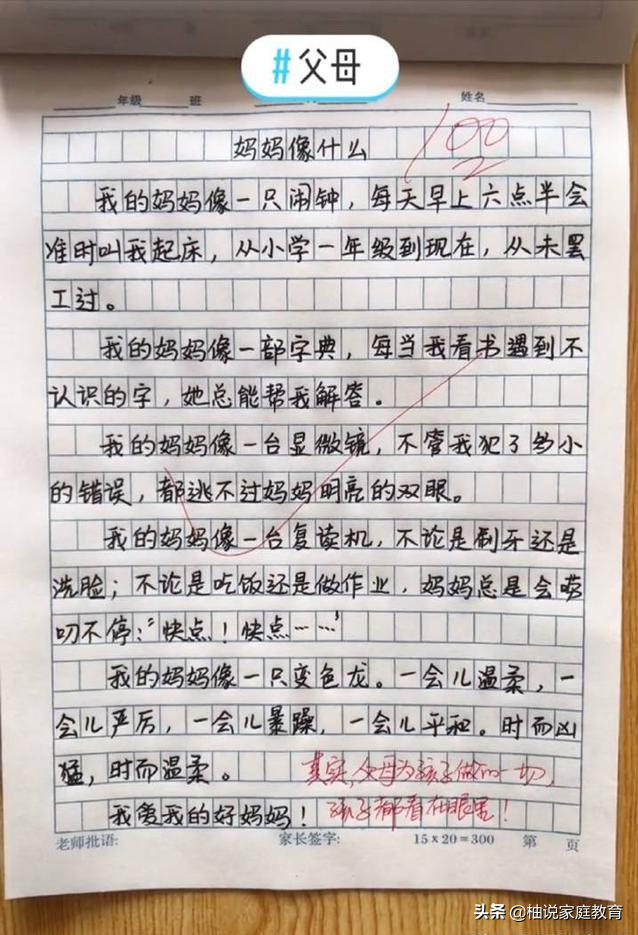 #父母
年级 班 姓名
100
妈妈像什么
我的妈妈像一只闹钟，每天早上六点半会
准时叫我起床，从小学一年级到现在，从未罢
工过。
我的妈妈像一部字典，每当我看书遇到不
认识的字，她总能帮我解答。
我的妈妈像一台显微镜，不管我犯了多小
的错误，都逃不过妈妈明亮的双眼。
我的妈妈像一台复读机，不论是刷牙还是
洗脸；不论是吃饭还是做作业，妈妈总是会唠
叨不停：“快点！快点……”
我的妈妈像一只变色龙。一会儿温柔，一
会儿严厉，一会儿暴躁，一会儿平和。时而凶
猛，时而温柔。
真实，父母为孩子做的一切，
我爱我的好妈妈！
孩子都看在眼里！
老师批语: 家长签字: 15×20=300 第 页
头条 @柚说家庭教育